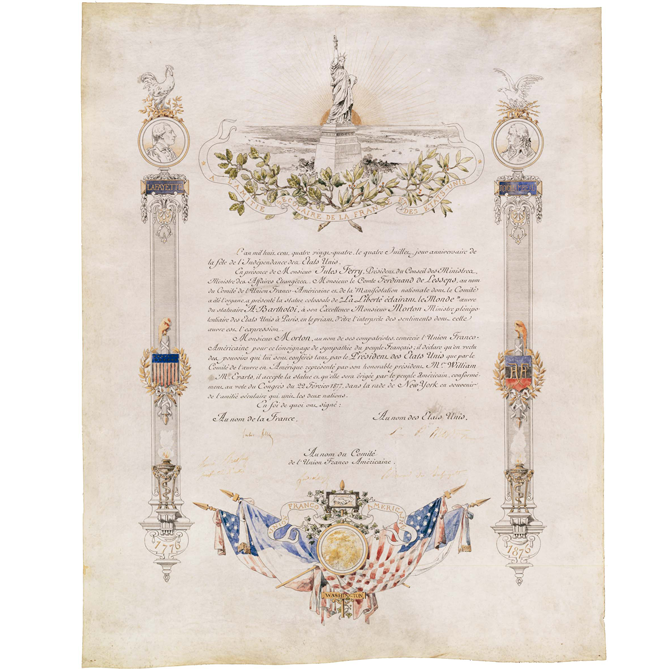 LAFAYETTE
CENTENAIRE DE LA FRANCE DES ÉTATS UNIS
L'an mil huit cent, quatre vingt-quatre, le quatre Juillet, jour anniversaire de
la fête de l'Indépendance des États Unis.
En présence de Monsieur Jules Ferry, Président du Conseil des Ministres,
Ministre des Affaires Étrangères, Monsieur le Comte Ferdinand de Lesseps, au nom
du Comité de l'Union Franco-Américaine et de la Manifestation nationale dont ce Comité
a été l'organe, a présenté la statue colossale de La Liberté éclairant le Monde œuvre
du statuaire A. Bartholdi, à son Excellence Monsieur Morton Ministre plénipo-
tentiaire des États Unis à Paris, en le priant d'être l'interprète des sentiments dont cette
œuvre est l'expression.
Monsieur Morton, au nom de ses compatriotes, remercie l'Union Franco-
Américaine pour ce témoignage de sympathie du peuple Français; il déclare qu'en vertu
des pouvoirs qui lui sont conférés tant par le Président des États Unis que par le
Comité de l'œuvre en Amérique représenté par son honorable président, Mr. William
M. Evarts, il accepte la statue et qu'elle sera érigée par le peuple Américain, conformé-
ment au vote du Congrès du 22 Février 1877, dans la rade de New York en souvenir
de l'amitié séculaire qui unit les deux nations.
En foi de quoi ont signé:
Au nom de la France, Au nom des États Unis,
Au nom du Comité
de l'Union Franco Américaine.
1776
1876
FRANCO AMÉRICAINE
RF
WASHINGTON